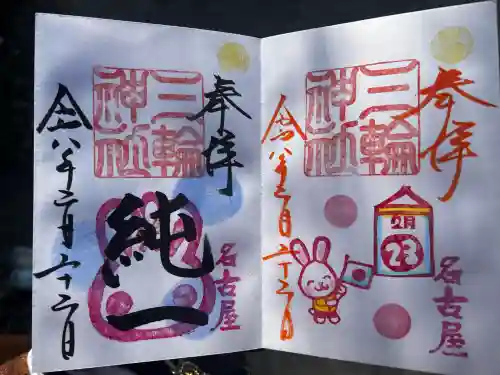 奉拝
三輪
神社
純一
名古屋
令八年二月二十二日
奉拝
三輪
神社
2月
23
名古屋
令八年二月二十三日